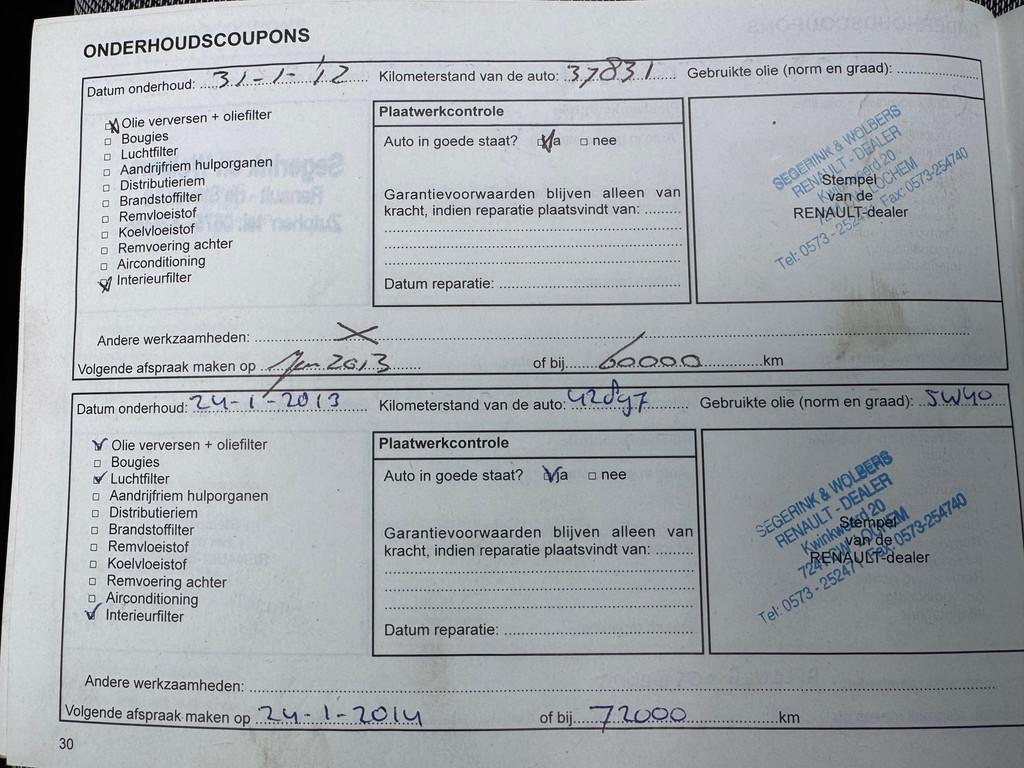 ONDERHOUDSCOUPONS
Datum onderhoud: 31-1-'12 Kilometerstand van de auto: 37831 Gebruikte olie (norm en graad):
Olie verversen + oliefilter
Bougies
Luchtfilter
Aandrijfriem hulporganen
Distributieriem
Brandstoffilter
Remvloeistof
Koelvloeistof
Remvoering achter
Airconditioning
Interieurfilter
Plaatwerkcontrole
Auto in goede staat? ja nee
Garantievoorwaarden blijven alleen van
kracht, indien reparatie plaatsvindt van:
Datum reparatie:
SEGERINK & WOLBERS
RENAULT - DEALER
Kwinkweerd 20
LOCHEM
Tel: 0573 - 2524 Fax: 0573-254740
Stempel
van de
RENAULT-dealer
Andere werkzaamheden: X
Volgende afspraak maken op Jan 2013 of bij 60000 km
Datum onderhoud: 24-1-2013 Kilometerstand van de auto: Gebruikte olie (norm en graad): 5W40
Olie verversen + oliefilter
Bougies
Luchtfilter
Aandrijfriem hulporganen
Distributieriem
Brandstoffilter
Remvloeistof
Koelvloeistof
Remvoering achter
Airconditioning
Interieurfilter
Plaatwerkcontrole
Auto in goede staat? ja nee
Garantievoorwaarden blijven alleen van
kracht, indien reparatie plaatsvindt van:
Datum reparatie:
SEGERINK & WOLBERS
RENAULT - DEALER
Kwinkweerd 20
LOCHEM
Tel: 0573 - 25247 Fax: 0573-254740
Stempel
van de
RENAULT-dealer
Andere werkzaamheden:
Volgende afspraak maken op 24-1-2014 of bij 72000 km
30